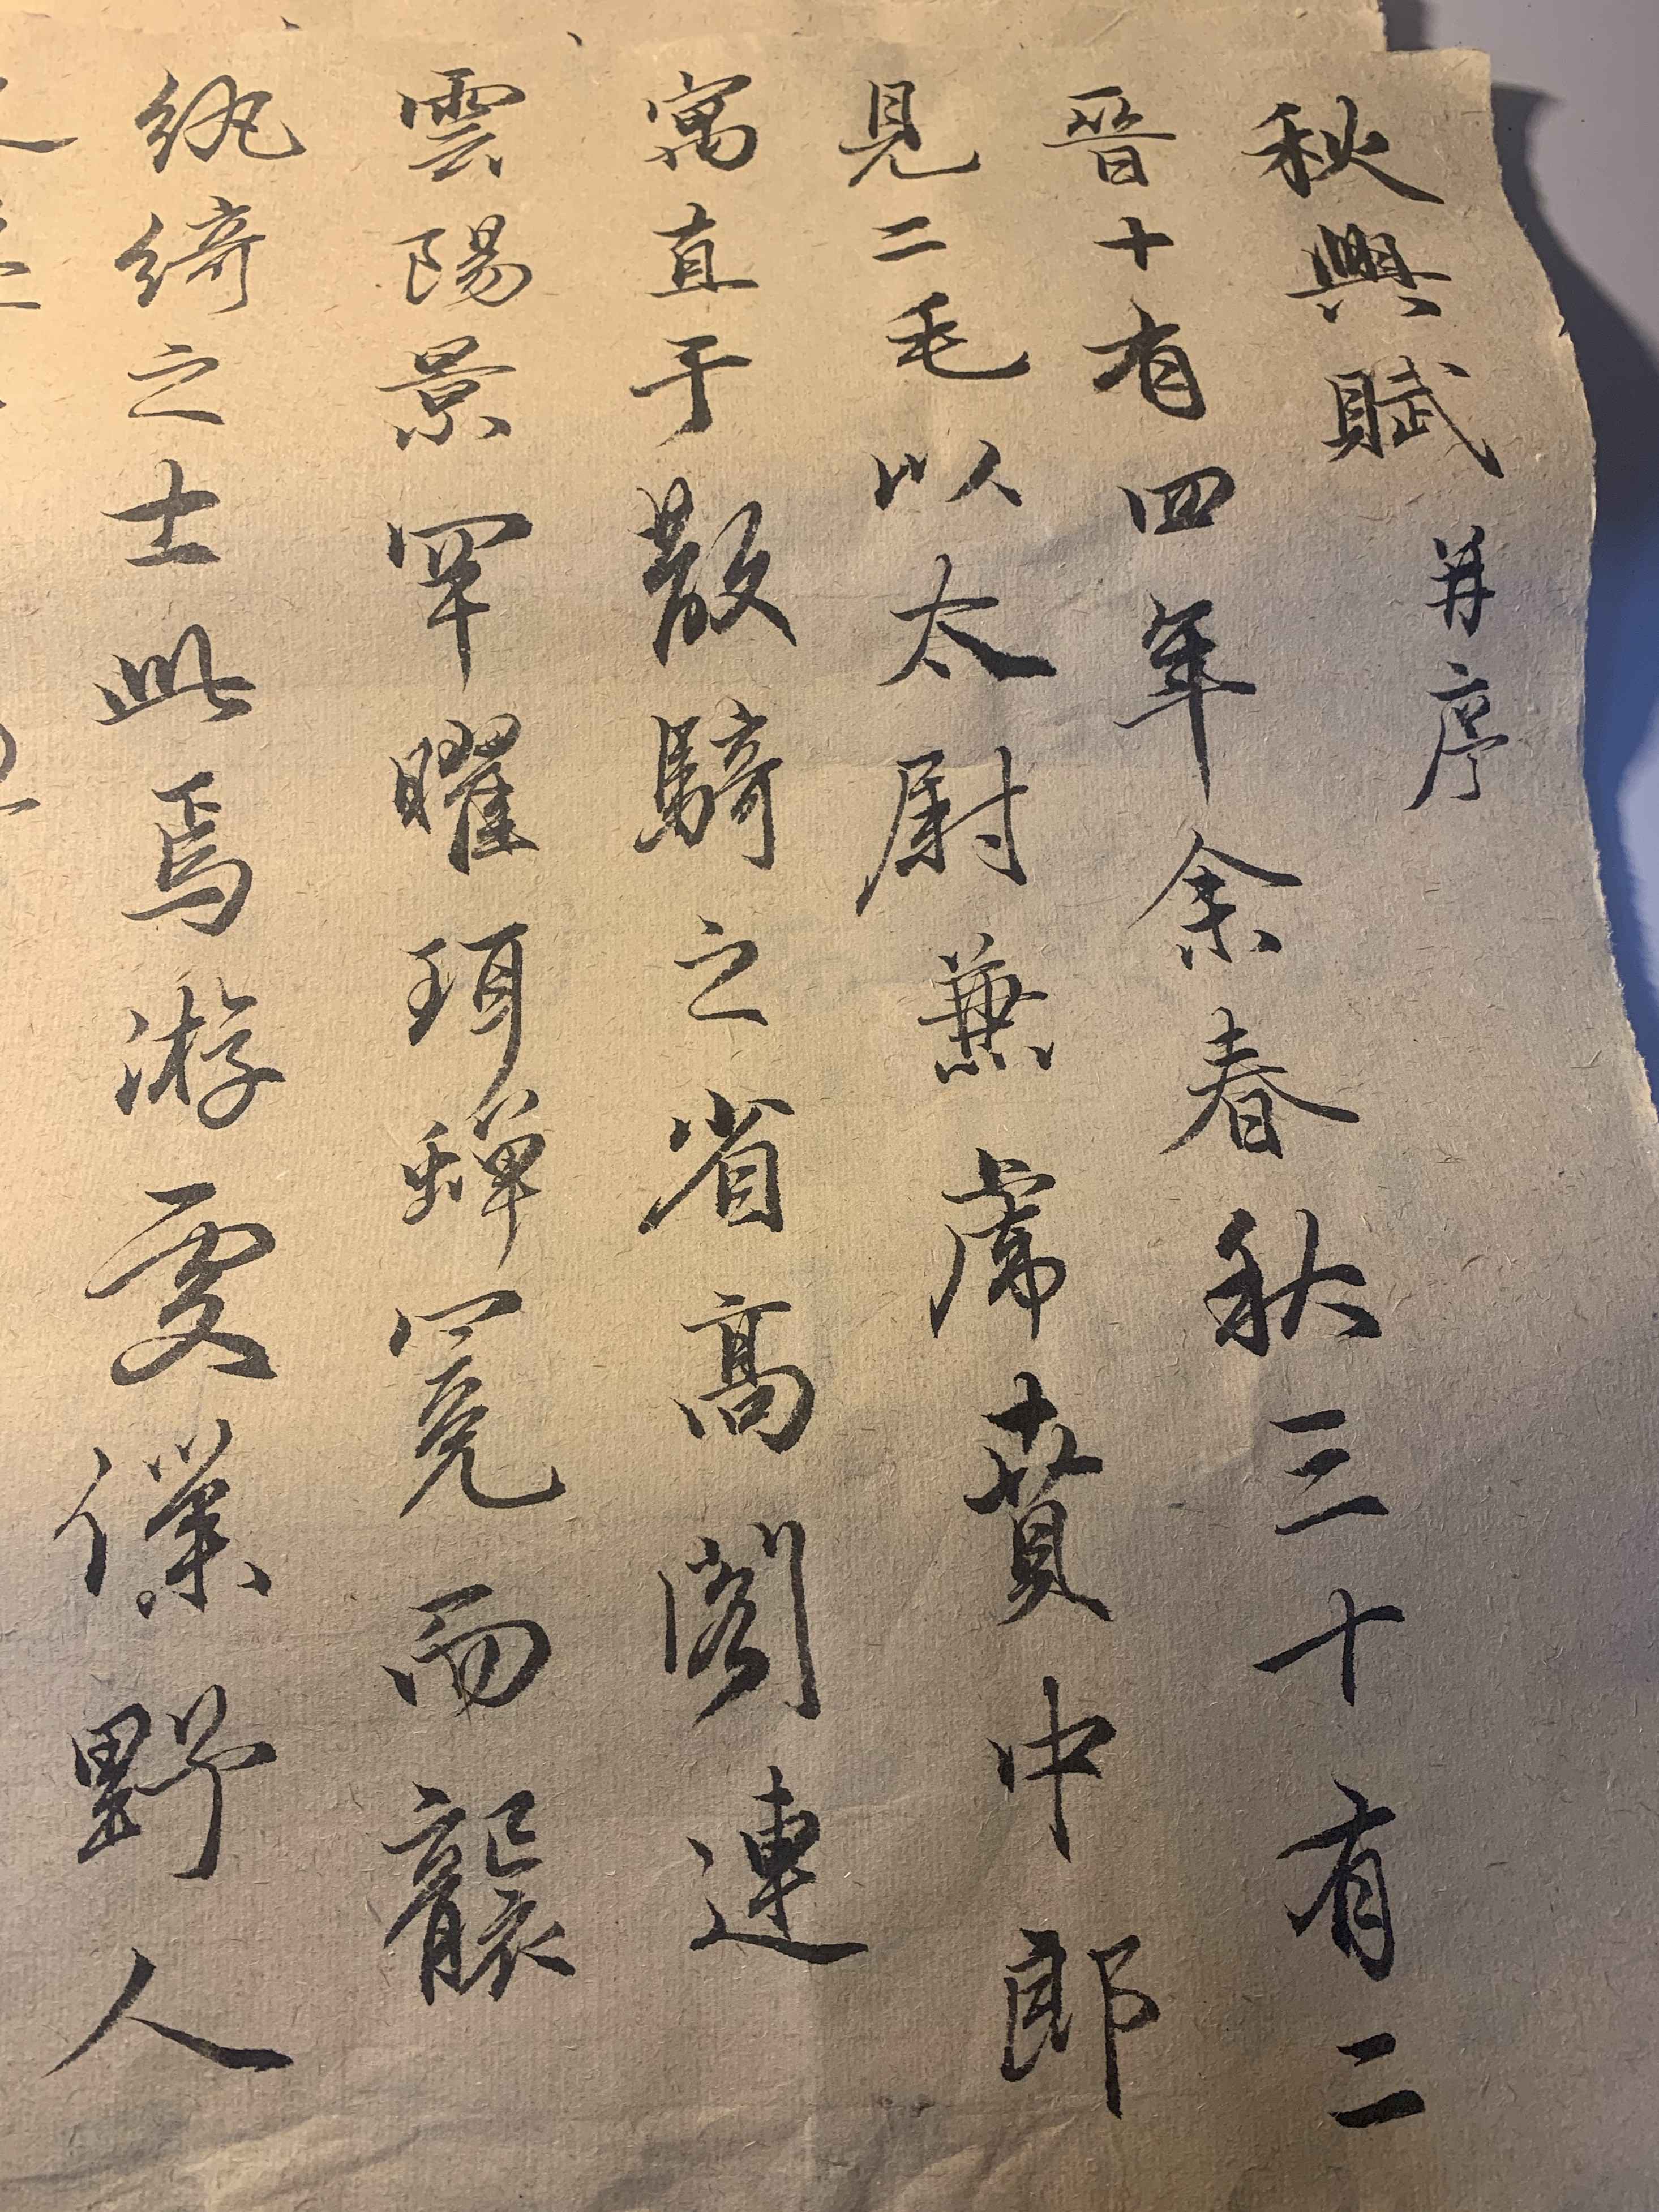 秋興賦并序
晉十有四年余春秋三十有二
見二毛以太尉兼虎賁中郎
寓直于散騎之省高閣連
雲陽景罕曜珥蟬冕而襲
紈綺之士此焉游處僕野人